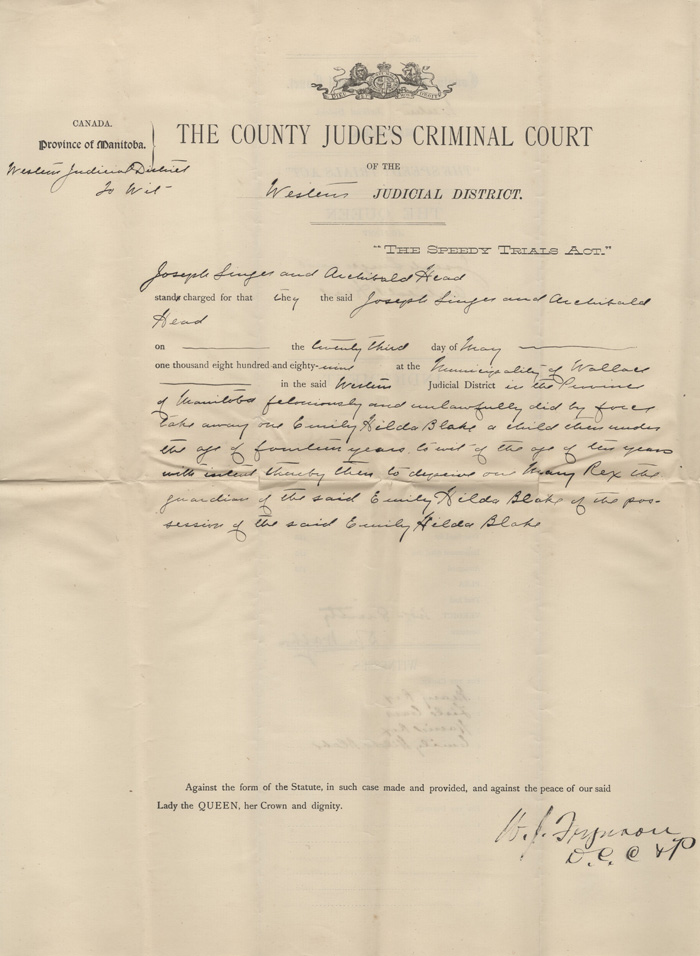 CANADA.
Province of Manitoba.
Western Judicial District
To Wit
THE COUNTY JUDGE'S CRIMINAL COURT
OF THE
Western JUDICIAL DISTRICT.
"THE SPEEDY TRIALS ACT."
Joseph Singer and Archibald Head
stand charged for that they the said Joseph Singer and Archibald
Head
on the twenty third day of May
one thousand eight hundred and eighty-nine at the Municipality of Wallace
in the said Western Judicial District in the Province
of Manitoba feloniously and unlawfully did by force
take away one Emily Hilda Blake a child then under
the age of fourteen years, to wit of the age of ten years
with intent thereby then to deprive one Mary Rex the
guardian of the said Emily Hilda Blake of the pos-
session of the said Emily Hilda Blake
Against the form of the Statute, in such case made and provided, and against the peace of our said
Lady the QUEEN, her Crown and dignity.
W. J.
D. C. C & P